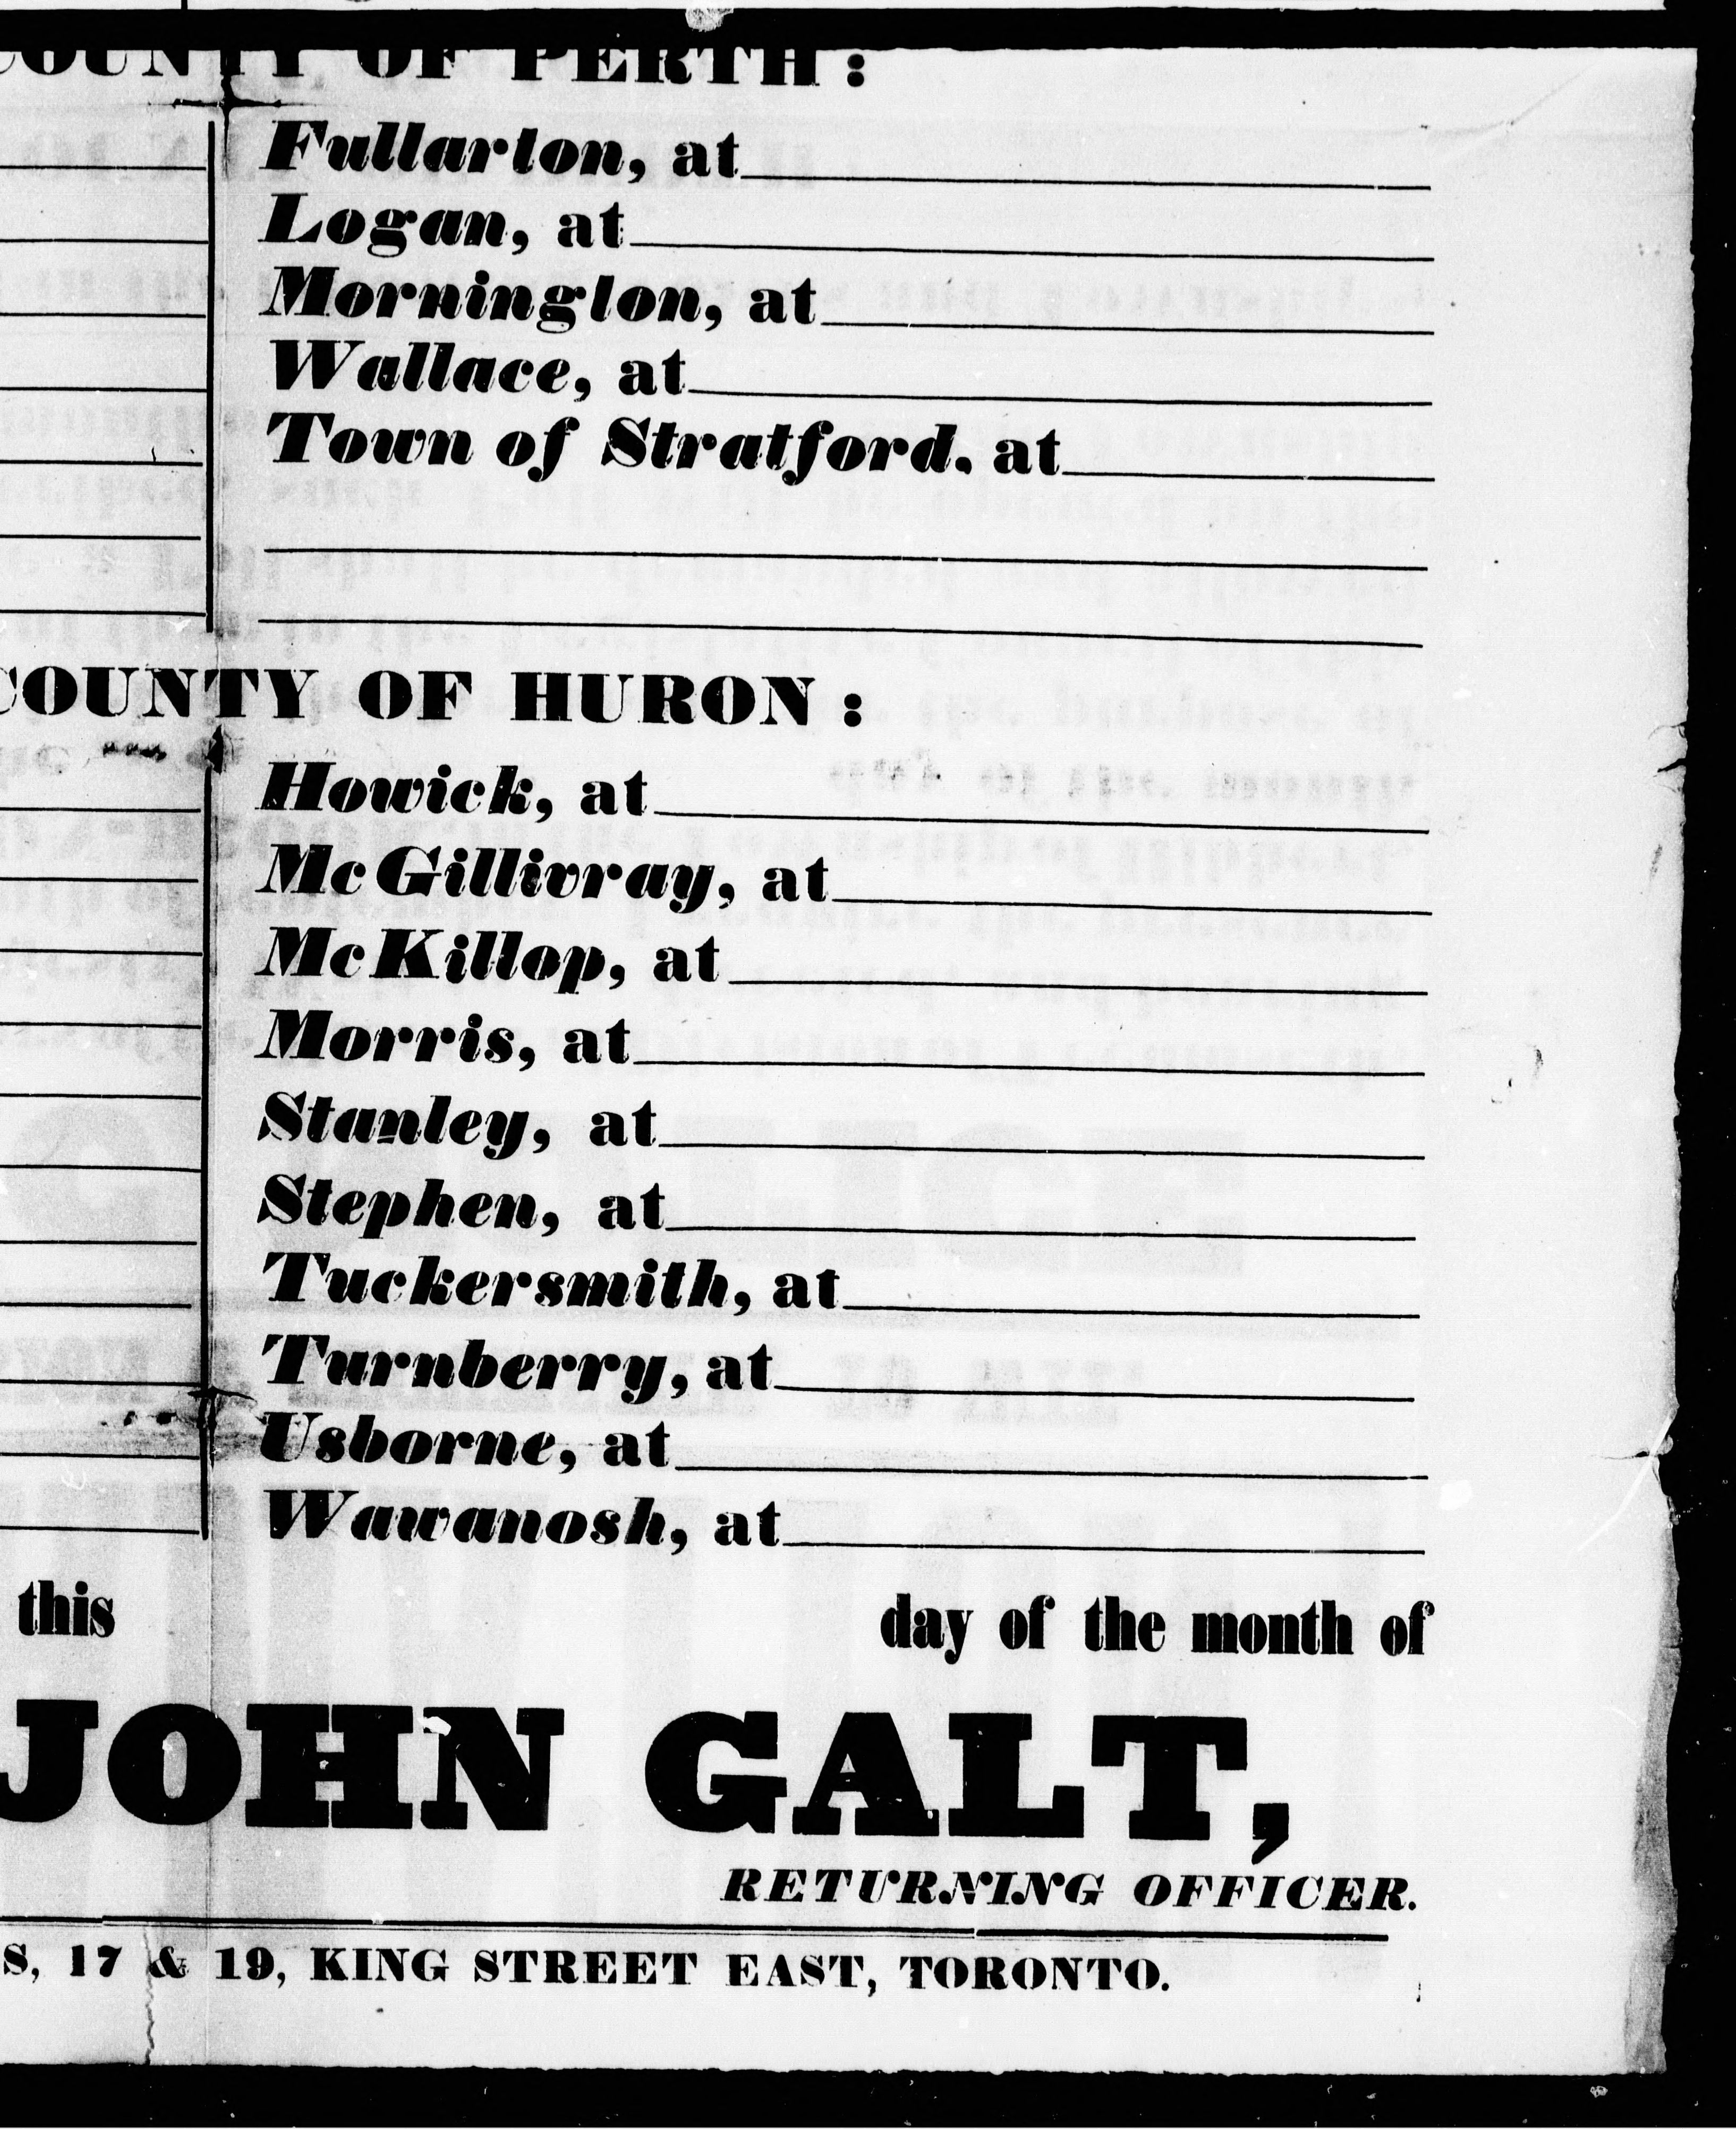 COUNTY OF PERTH:
Fullarton, at
Logan, at
Mornington, at
Wallace, at
Town of Stratford, at
COUNTY OF HURON:
Howick, at
McGillivray, at
McKillop, at
Morris, at
Stanley, at
Stephen, at
Tuckersmith, at
Turnberry, at
Usborne, at
Wawanosh, at
this day of the month of
JOHN GALT,
RETURNING OFFICER.
S, 17 & 19, KING STREET EAST, TORONTO.